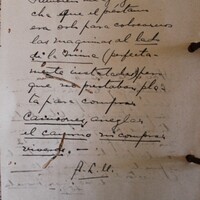 cha que el préstamo
era solo para colocarnos
las maquinas al lado
de la mina (perfecta-
mente instalados) pero
que no prestaban pla-
ta para comprar
Camiones, arreglar
el camino ni comprar
víveres.
A.L.M.